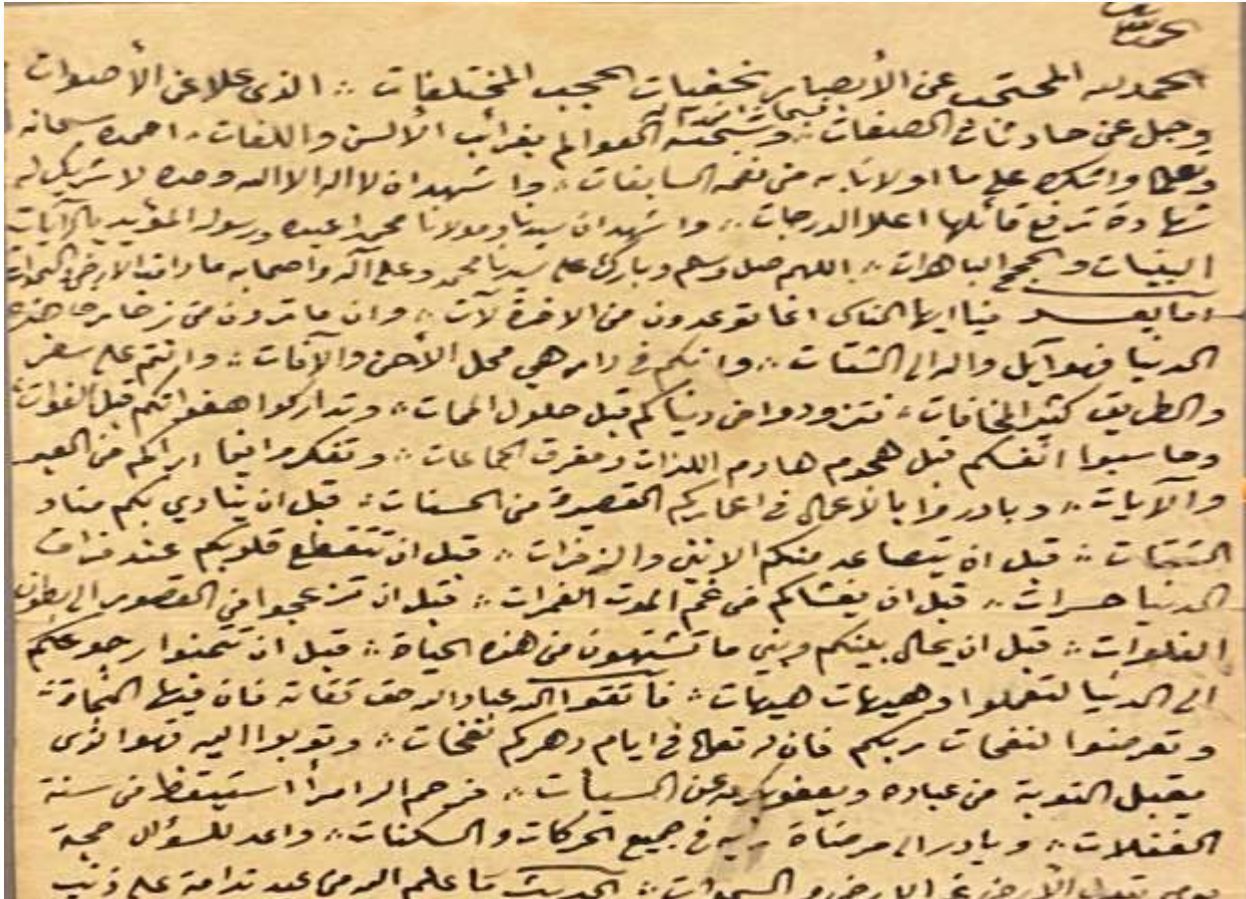 الحمد لله المحتجب عن الأبصار بخفيات الحجب المختلفات ∴ الذى علا عن الأصوات
وجل عن حادثات الصفات ∴ وسبحته العوالم بغرائب الألسن واللغات ∴ احمده سبحانه
وتعالى واشكره على ما اولانا به من نعمه السابغات ∴ واشهد ان لا اله الا الله وحده لا شريك له
شهادة ترفع قائلها اعلا الدرجات ∴ واشهد ان سيدنا ومولانا محمدا عبده ورسوله المؤيد بالآيات
البينات والحجج الباهرات ∴ اللهم صل وسلم وبارك على سيدنا محمد وعلى آله واصحابه ما دامت الارض والسموات
اما بعد فيا ايها الناس انما توعدون من الاخرة لآت ∴ وان ما ترون من زخارف هذه
الدنيا فهو آيل والله الى الشتات ∴ وانكم فى دار هي محل الأحن والآفات ∴ وانتم على سفر
والطريق كثير المخافات ∴ فتزودوا من دنياكم قبل حلول الممات ∴ وتداركوا هفواتكم قبل الفوات ∴
وحاسبوا انفسكم قبل هجوم هادم اللذات ومفرق الجماعات ∴ وتفكروا فيما اراكم من العبر
والآيات ∴ وبادروا بالاعمال فى اعماركم القصيرة من الحسنات ∴ قبل ان ينادي بكم مناد
الشتات ∴ قبل ان يتصاعد منكم الانين والزفرات ∴ قبل ان تتقطع قلوبكم عند فراق
الدنيا حسرات ∴ قبل ان يغشاكم من غم الموت الغمرات ∴ قبل ان تزعجوا من القصور الى بطون
الفلوات ∴ قبل ان يحال بينكم وبين ما تشتهون من هذه الحياة ∴ قبل ان تتمنوا رجوعكم
الى الدنيا لتعملوا وهيهات هيهات ∴ فاتقوا الله عباد الله حق تقاته فان فيها النجاة ∴
وتعرضوا لنفحات ربكم فان له تعالى فى ايام دهركم نفحات ∴ وتوبوا اليه فهو الذى
يقبل التوبة من عباده ويعفو بكرمه عن السيأت ∴ فرحم الله امرأ استيقظ من سنة
الغفلات ∴ وبادر الى مرضاة ربه فى جميع الحركات والسكنات ∴ واعد للسؤال حجة
يوم تبدل الأرض غير الارض والسموات ∴ الحديث ما علم الله من عبد ندامة على ذنب